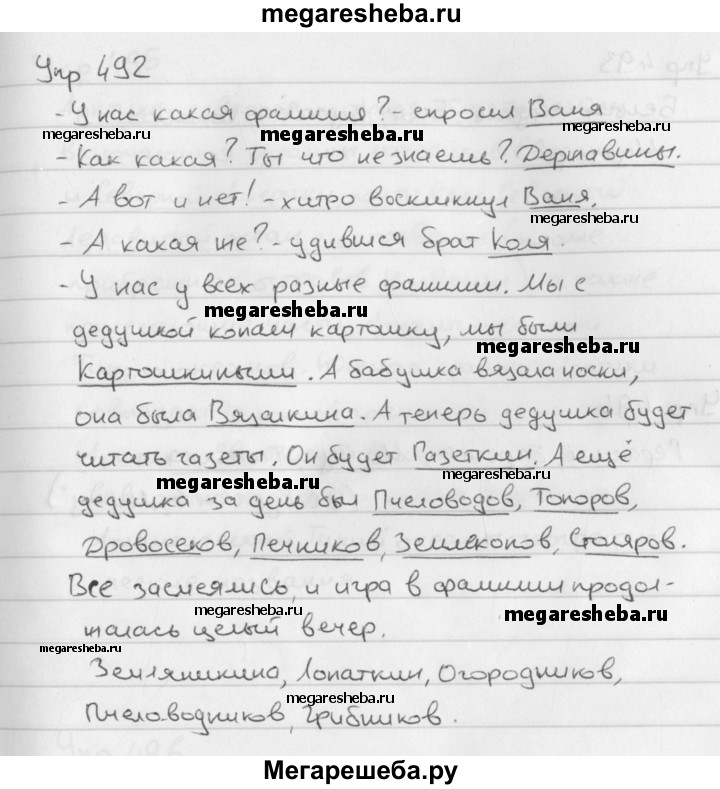 megaresheba.ru
Упр 492
- У нас какая фамилия? - спросил Ваня
megaresheba.ru megaresheba.ru megaresheba.ru
- Как какая? Ты что не знаешь? Державины.
- А вот и нет! - хитро воскликнул Ваня.
megaresheba.ru
- А какая же? - удивился брат Коля.
- У нас у всех разные фамилии. Мы с
megaresheba.ru
дедушкой копали картошку, мы были
megaresheba.ru
Картошкиными. А бабушка вязала носки,
она была Вязалкина. А теперь дедушка будет
читать газеты. Он будет Газеткин. А ещё
megaresheba.ru megaresheba.ru
дедушка за день был Пчеловодов, Топоров,
Дровосеков, Печников, Землекопов, Столяров.
Все засмеялись, и игра в фамилии продол-
megaresheba.ru megaresheba.ru
жалась целый вечер.
megaresheba.ru
Земляникина, Лопаткин, Огородников,
megaresheba.ru
Пчеловодников, Грибников.
Мегарешеба.ру